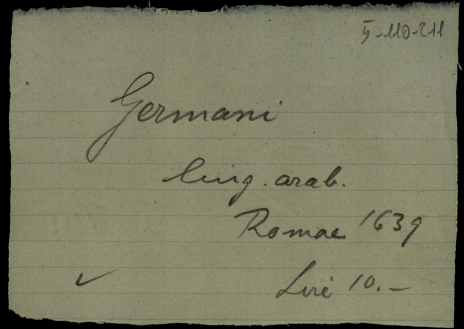 5-110-211
Germani
ling. arab.
Romae 1639
Lire 10.-